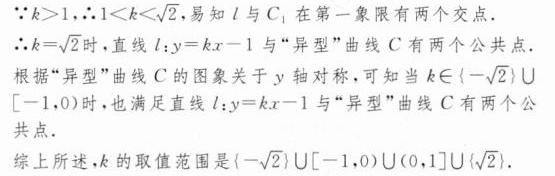 ∵k>1,∴1<k<√2,易知 l 与 C₁ 在第一象限有两个交点.
∴k=√2时,直线 l:y=kx−1 与“异型”曲线 C 有两个公共点.
根据“异型”曲线 C 的图象关于 y 轴对称,可知当 k∈{−√2}∪
[−1,0)时,也满足直线 l:y=kx−1 与“异型”曲线 C 有两个公
共点.
综上所述,k 的取值范围是{−√2}∪[−1,0)∪(0,1]∪{√2}.